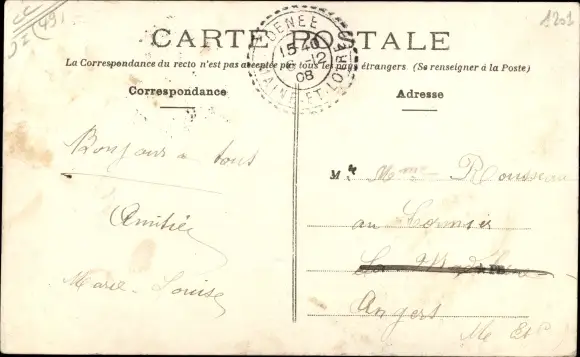 (49)
1201
CARTE POSTALE
DENÉE
15-40
6-12
08
MAINE-ET-LOIRE
La Correspondance du recto n'est pas acceptée par tous les pays étrangers (Se renseigner à la Poste)
Correspondance
Adresse
Bonjour a tous
Amitiés
Marie-Louise
M Mme Rousseau
au Cormier
La Madeleine
Angers
Me Et